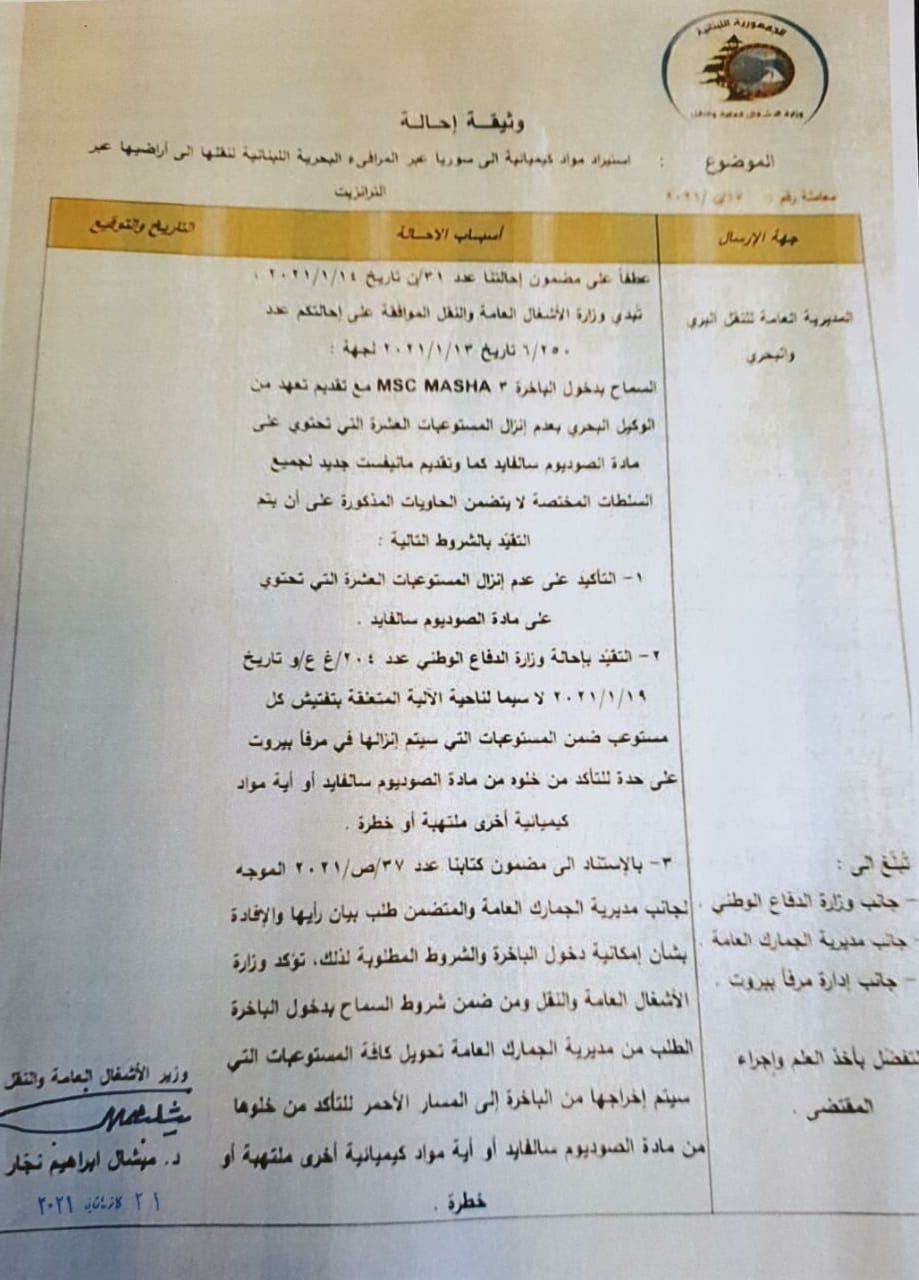 الجمهورية اللبنانية
وزارة الأشغال العامة والنقل
وثيقـة إحالـة
الموضوع : استيراد مواد كيميائية الى سوريا عبر المرافىء البحرية اللبنانية لنقلها الى أراضيها عبر
الترانزيت
معاملة رقم : /٢٠٢١
جهة الإرسال
أسبـاب الإحالـة
التاريخ والتوقيع
المديرية العامة للنقل البري
والبحري
عطفاً على مضمون إحالتنا عدد ٣١/ن تاريخ ٢٠٢١/١/١٤ ،
تُبدي وزارة الأشغال العامة والنقل الموافقة على إحالتكم عدد
٦/٢٥٠ تاريخ ٢٠٢١/١/١٣ لجهة :
السماح بدخول الباخرة MSC MASHA ٣ مع تقديم تعهد من
الوكيل البحري بعدم إنزال المستوعبات العشرة التي تحتوي على
مادة الصوديوم سالفايد كما وتقديم مانيفست جديد لجميع
السلطات المختصة لا يتضمن الحاويات المذكورة على أن يتم
التقيّد بالشروط التالية :
١- التأكيد على عدم إنزال المستوعبات العشرة التي تحتوي
على مادة الصوديوم سالفايد .
٢- التقيّد بإحالة وزارة الدفاع الوطني عدد ٢٠٤/غ ع/و تاريخ
٢٠٢١/١/١٩ لا سيما لناحية الآلية المتعلقة بتفتيش كل
مستوعب ضمن المستوعبات التي سيتم إنزالها في مرفأ بيروت
على حدة للتأكد من خلوه من مادة الصوديوم سالفايد أو أية مواد
كيميائية أخرى ملتهبة أو خطرة .
٣- بالإستناد الى مضمون كتابنا عدد ٣٧/ص/٢٠٢١ الموجه
لجانب مديرية الجمارك العامة والمتضمن طلب بيان رأيها والإفادة
بشأن إمكانية دخول الباخرة والشروط المطلوبة لذلك، تؤكد وزارة
الأشغال العامة والنقل ومن ضمن شروط السماح بدخول الباخرة
الطلب من مديرية الجمارك العامة تحويل كافة المستوعبات التي
سيتم إخراجها من الباخرة إلى المسار الأحمر للتأكد من خلوها
من مادة الصوديوم سالفايد أو أية مواد كيميائية أخرى ملتهبة أو
خطرة .
تُبلّغ الى :
- جانب وزارة الدفاع الوطني .
- جانب مديرية الجمارك العامة .
- جانب إدارة مرفأ بيروت .
للتفضل بأخذ العلم وإجراء
المقتضى .
وزير الأشغال العامة والنقل
د. ميشال ابراهيم نجّار
٢١ كانون٢ ٢٠٢١